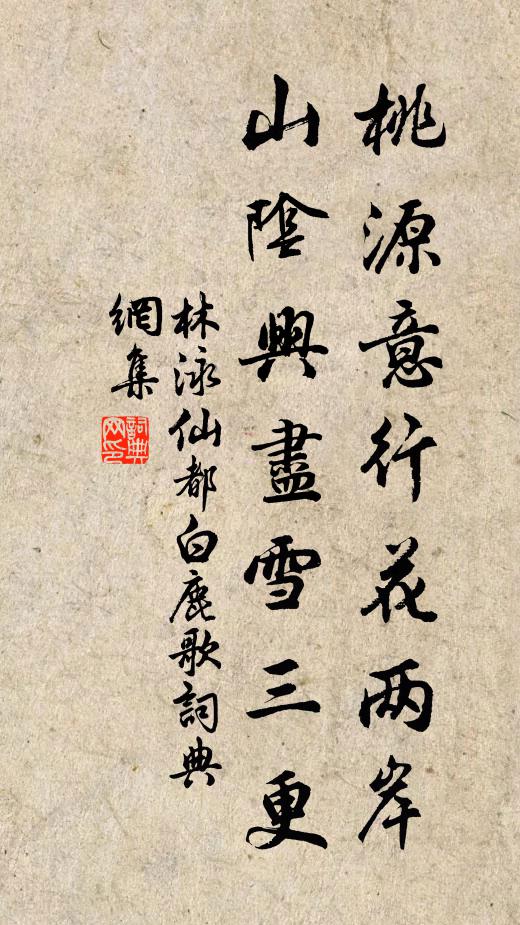 桃源意行花两岸
山陰興盡雪三更
林泳仙都白鹿歌詞典
網集
詞典
网印